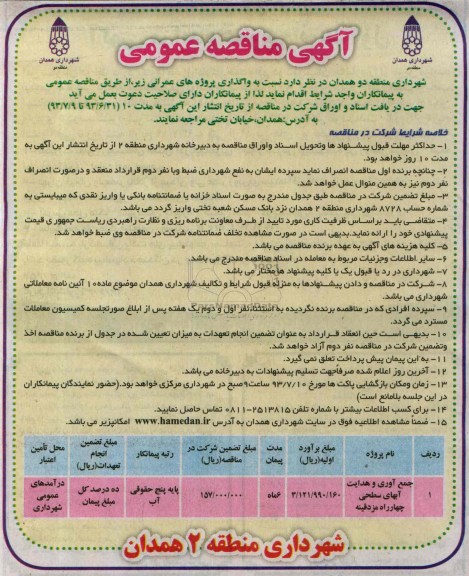 آگهی مناقصه عمومی
شهرداری همدان
منطقه دو
شهرداری همدان
منطقه دو
شهرداری منطقه دو همدان در نظر دارد نسبت به واگذاری پروژه های عمرانی زیر،از طریق مناقصه عمومی
به پیمانکاران واجد شرایط اقدام نماید لذا از پیمانکاران دارای صلاحیت دعوت بعمل می آید
جهت در یافت اسناد و اوراق شرکت در مناقصه از تاریخ انتشار این آگهی به مدت ۱۰ (۹۳/۶/۳۱ تا ۹۳/۷/۹)
به آدرس:همدان،خیابان تختی مراجعه نمایند.
خلاصه شرایط شرکت در مناقصه
۱- حداکثر مهلت قبول پیشنهاد ها وتحویل اسناد واوراق مناقصه به دبیرخانه شهرداری منطقه ۲ از تاریخ انتشار این آگهی به
مدت ۱۰ روز خواهد بود.
۲- چنانچه برنده اول مناقصه انصراف نماید سپرده ایشان به نفع شهرداری ضبط وبا نفر دوم قرارداد منعقد و درصورت انصراف
نفر دوم نیز به همین منوال عمل خواهد شد.
۳- مبلغ تضمین شرکت در مناقصه طبق جدول مندرج به صورت اسناد خزانه یا ضمانتنامه بانکی یا واریز نقدی که میبایستی به
شماره حساب ۸۷۲۸ شهرداری منطقه ۲ همدان نزد بانک مسکن شعبه تختی واریز گردد می باشد.
۴- متقاضی باید براساس ظرفیت کاری مورد تایید از طرف معاونت برنامه ریزی و نظارت راهبردی ریاست جمهوری قیمت
پیشنهادی خود را ارائه نماید.بدیهی است در صورت مشاهده تخلف ضمانتنامه شرکت در مناقصه وی ضبط خواهد شد.
۵- کلیه هزینه های آگهی به عهده برنده مناقصه می باشد.
۶- سایر اطلاعات وجزئیات مربوط به معامله در اسناد مناقصه مندرج می باشد.
۷- شهرداری در رد یا قبول یک یا کلیه پیشنهاد ها مختار می باشد.
۸- شرکت در مناقصه و دادن پیشنهادها به منزله قبول شرایط و تکالیف شهرداری همدان موضوع ماده۱۰ آئین نامه معاملاتی
شهرداری می باشد.
۹- سپرده افرادی که در مناقصه برنده نگردیده به استثناء نفر اول و دوم یک هفته پس از ابلاغ صورتجلسه کمیسیون معاملات
مسترد می گردد.
۱۰- بدیهی است حین انعقاد قرارداد به عنوان تضمین انجام تعهدات به میزان تعیین شده در جدول از برنده مناقصه اخذ
وتضمین شرکت در مناقصه نفر دوم آزاد خواهد شد.
۱۱- به این پیمان پیش پرداخت تعلق نمی گیرد.
۱۲- آخرین روز اعلام شده صرفأجهت تسلیم پیشنهادات به دبیرخانه می باشد.
۱۳- زمان ومکان بازگشایی پاکت ها مورخ ۹۳/۷/۱۰ ساعت۹صبح در شهرداری مرکزی خواهد بود.(حضور نمایندگان پیمانکاران
در این جلسه بلامانع است)
۱۴- برای کسب اطلاعات بیشتر با شماره تلفن ۲۵۱۳۸۱۵-۰۸۱۱ تماس حاصل نمایید.
۱۵- ضمنأ مشاهده اطلاعیه فوق در سایت شهرداری همدان به آدرس www.hamedan.ir امکانپذیر می باشد.
ردیف نام پروژه مبلغ برآورد اولیه(ریال) مدت پیمان مبلغ تضمین شرکت در مناقصه(ریال) رتبه پیمانکار مبلغ تضمین انجام تعهدات(ریال) محل تأمین اعتبار
۱ جمع آوری و هدایت آبهای سطحی چهارراه مزدقینه ۳/۱۲۱/۹۹۰/۱۶۰ ۶ماه ۱۵۷/۰۰۰/۰۰۰ پایه پنج حقوقی آب ده درصد کل مبلغ پیمان درآمدهای عمومی شهرداری
شهرداری منطقه ۲ همدان